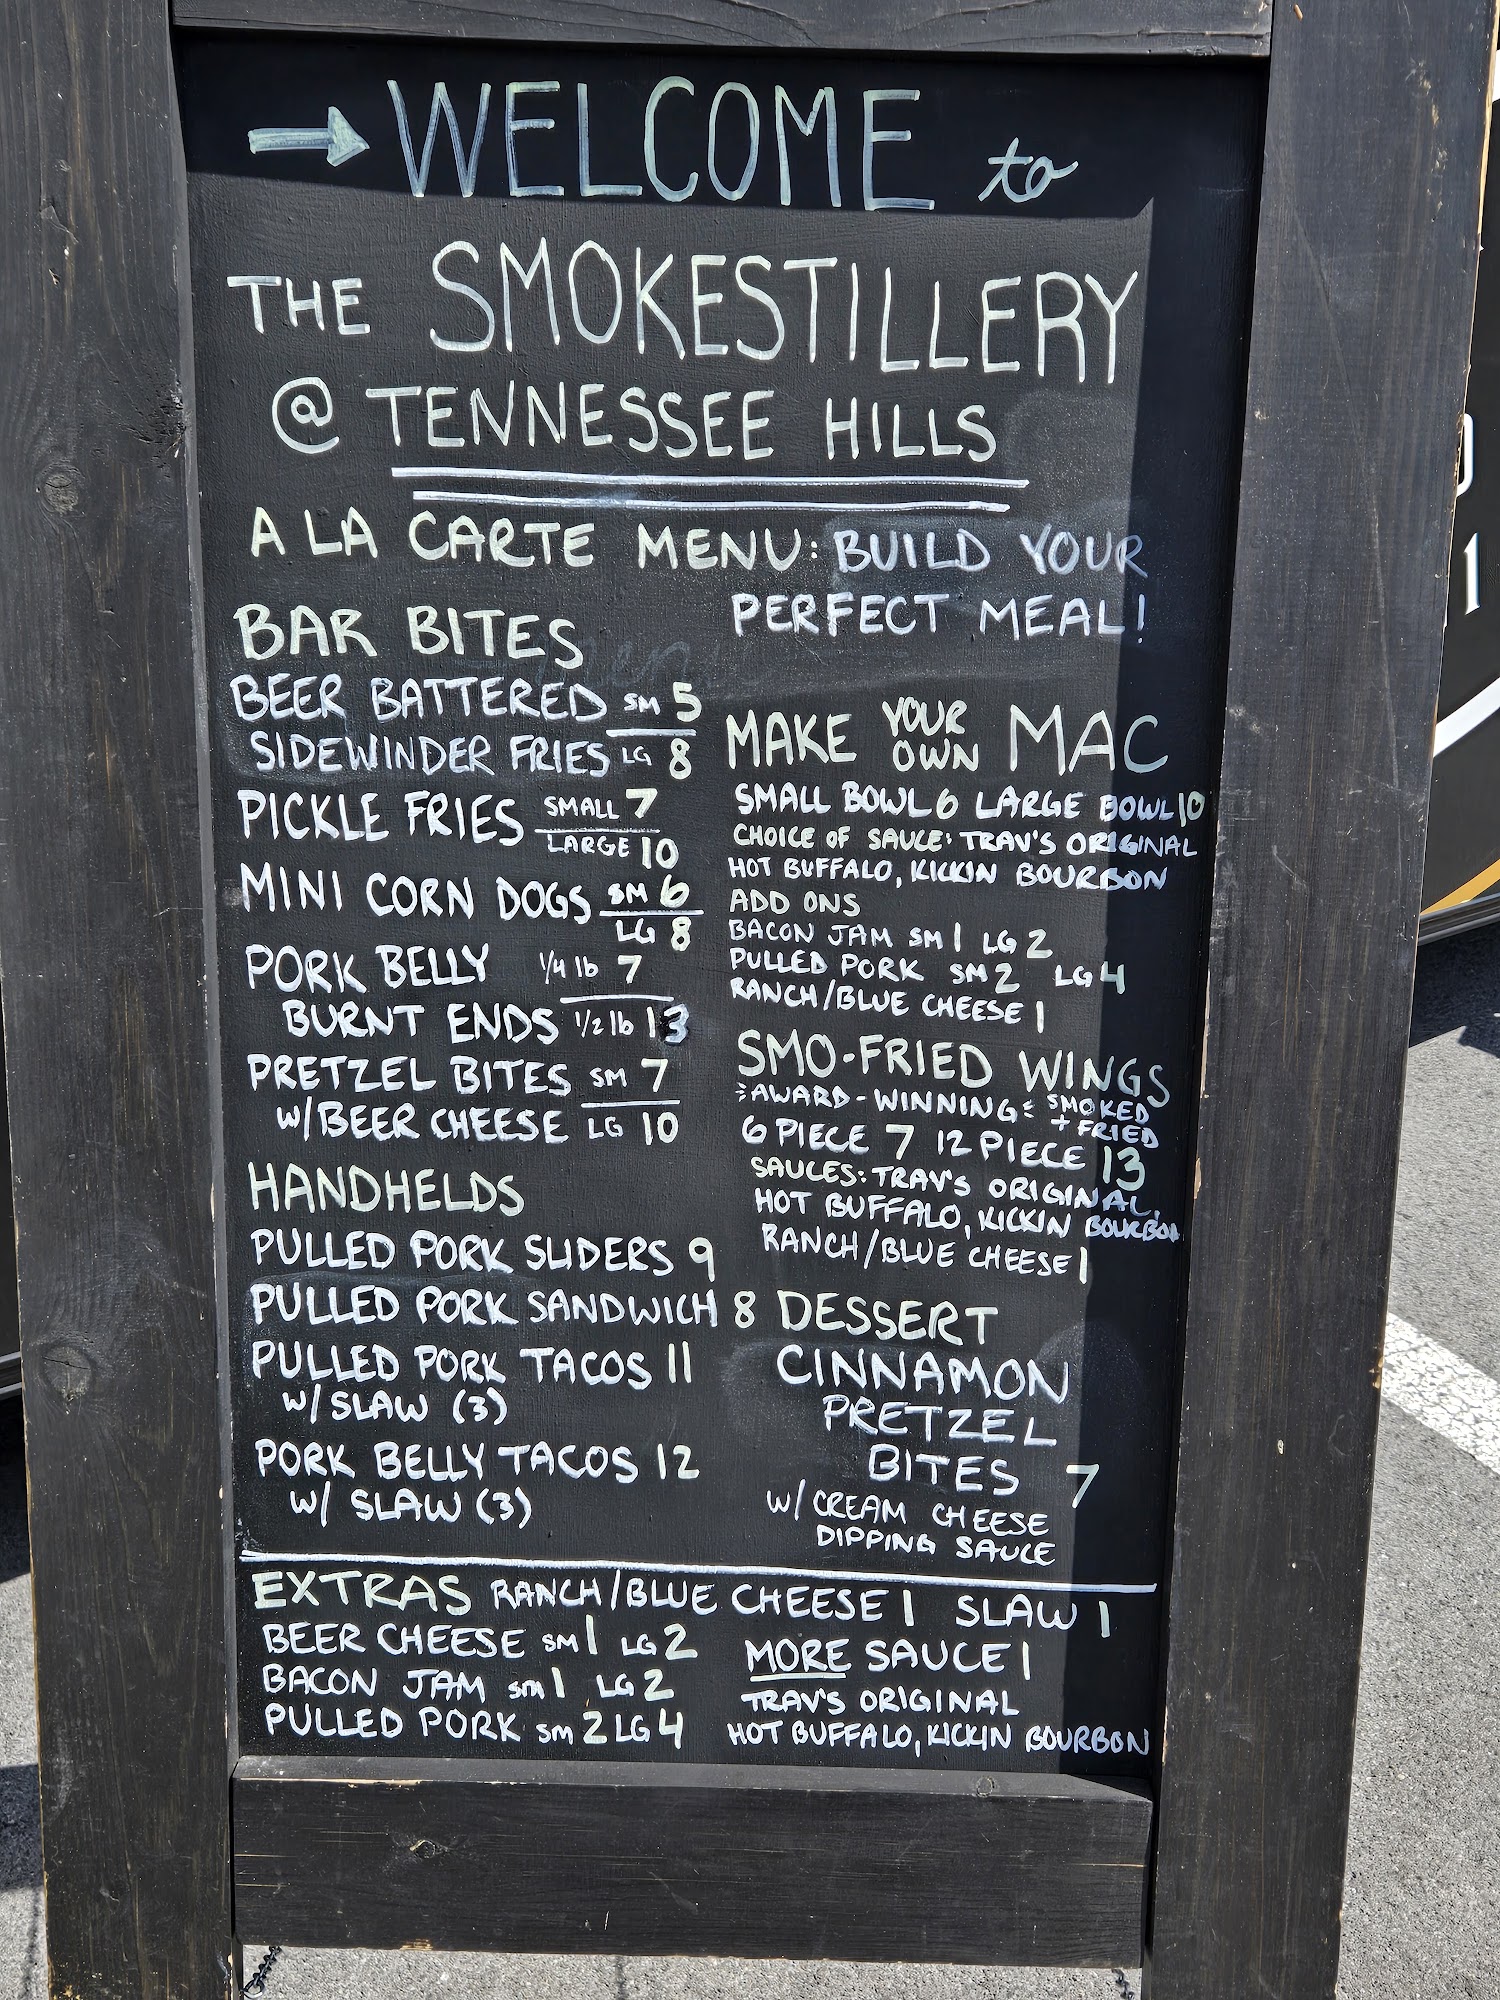 → WELCOME to
THE SMOKESTILLERY
@ TENNESSEE HILLS
A LA CARTE MENU: BUILD YOUR
PERFECT MEAL!
BAR BITES
BEER BATTERED SM 5
SIDEWINDER FRIES LG 8
PICKLE FRIES SMALL 7
LARGE 10
MINI CORN DOGS SM 6
LG 8
PORK BELLY 1/4 lb 7
BURNT ENDS 1/2 lb 13
PRETZEL BITES SM 7
W/BEER CHEESE LG 10
HANDHELDS
PULLED PORK SLIDERS 9
PULLED PORK SANDWICH 8
PULLED PORK TACOS 11
W/SLAW (3)
PORK BELLY TACOS 12
W/ SLAW (3)
MAKE YOUR OWN MAC
SMALL BOWL 6 LARGE BOWL 10
CHOICE OF SAUCE: TRAV'S ORIGINAL
HOT BUFFALO, KICKIN BOURBON
ADD ONS
BACON JAM SM 1 LG 2
PULLED PORK SM 2 LG 4
RANCH/BLUE CHEESE 1
SMO-FRIED WINGS
AWARD-WINNING SMOKED
+ FRIED
6 PIECE 7 12 PIECE 13
SAUCES: TRAV'S ORIGINAL,
HOT BUFFALO, KICKIN BOURBON
RANCH/BLUE CHEESE 1
DESSERT
CINNAMON
PRETZEL
BITES 7
W/ CREAM CHEESE
DIPPING SAUCE
EXTRAS RANCH/BLUE CHEESE 1 SLAW 1
BEER CHEESE SM 1 LG 2
BACON JAM SM 1 LG 2
PULLED PORK SM 2 LG 4
MORE SAUCE 1
TRAV'S ORIGINAL
HOT BUFFALO, KICKIN BOURBON